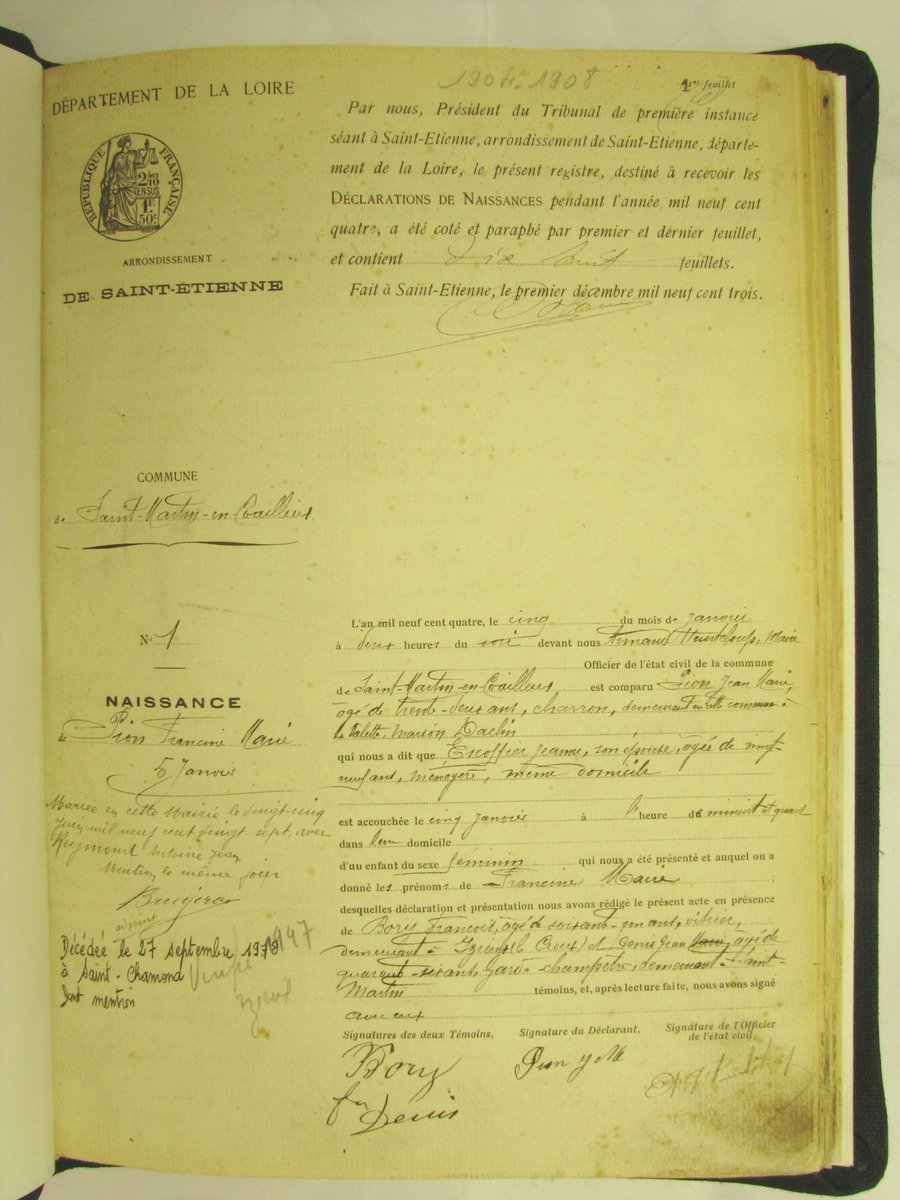 1904-1908
1er feuillet
DÉPARTEMENT DE LA LOIRE
RÉPUBLIQUE FRANÇAISE
2/10mes
EN SUS
1F
50c
ARRONDISSEMENT
DE SAINT-ÉTIENNE
Par nous, Président du Tribunal de première instance
séant à Saint-Etienne, arrondissement de Saint-Etienne, départe-
ment de la Loire, le présent registre, destiné à recevoir les
DÉCLARATIONS DE NAISSANCES pendant l'année mil neuf cent
quatre, a été coté et paraphé par premier et dernier feuillet,
et contient dix huit feuillets.
Fait à Saint-Etienne, le premier décembre mil neuf cent trois.
COMMUNE
de Saint-Martin-en-Coailleux
N° 1
NAISSANCE
de Pion Francine Marie
5 Janvier
Mariée en cette Mairie le vingt-cinq
Juin mil neuf cent vingt sept, avec
Raymond Antoine Jean
Mention le même jour
Brugères
adjoint
Décédée le 27 septembre 1978
à Saint-Chamond
Dont mention
L'an mil neuf cent quatre, le cinq du mois de janvier
à deux heures du soir devant nous Armand Heurteloup, Maire
Officier de l'état civil de la commune
de Saint-Martin-en-Coailleux, est comparu Pion Jean Marie,
âgé de trente-deux ans, charron, demeurant en cette commune à
la Valette, maison Daclin
qui nous a dit que Escoffier Jeanne, son épouse, âgée de vingt-
neuf ans, ménagère, même domicile
est accouchée le cinq janvier à heure de minuit et quart
dans leur domicile
d'un enfant du sexe féminin qui nous a été présenté et auquel on a
donné les prénoms de Francine Marie ;
desquelles déclaration et présentation nous avons rédigé le présent acte en présence
de Bory François, âgé de soixante-un ans, vitrier,
demeurant à Izieux (le Creux) et Denis Jean Marie, âgé de
quarante-six ans, garde-champêtre, demeurant à Saint-
Martin témoins, et, après lecture faite, nous avons signé
avec eux
Signatures des deux Témoins, Signature du Déclarant, Signature de l'Officier
de l'état civil,
Bory
Denis
Pion